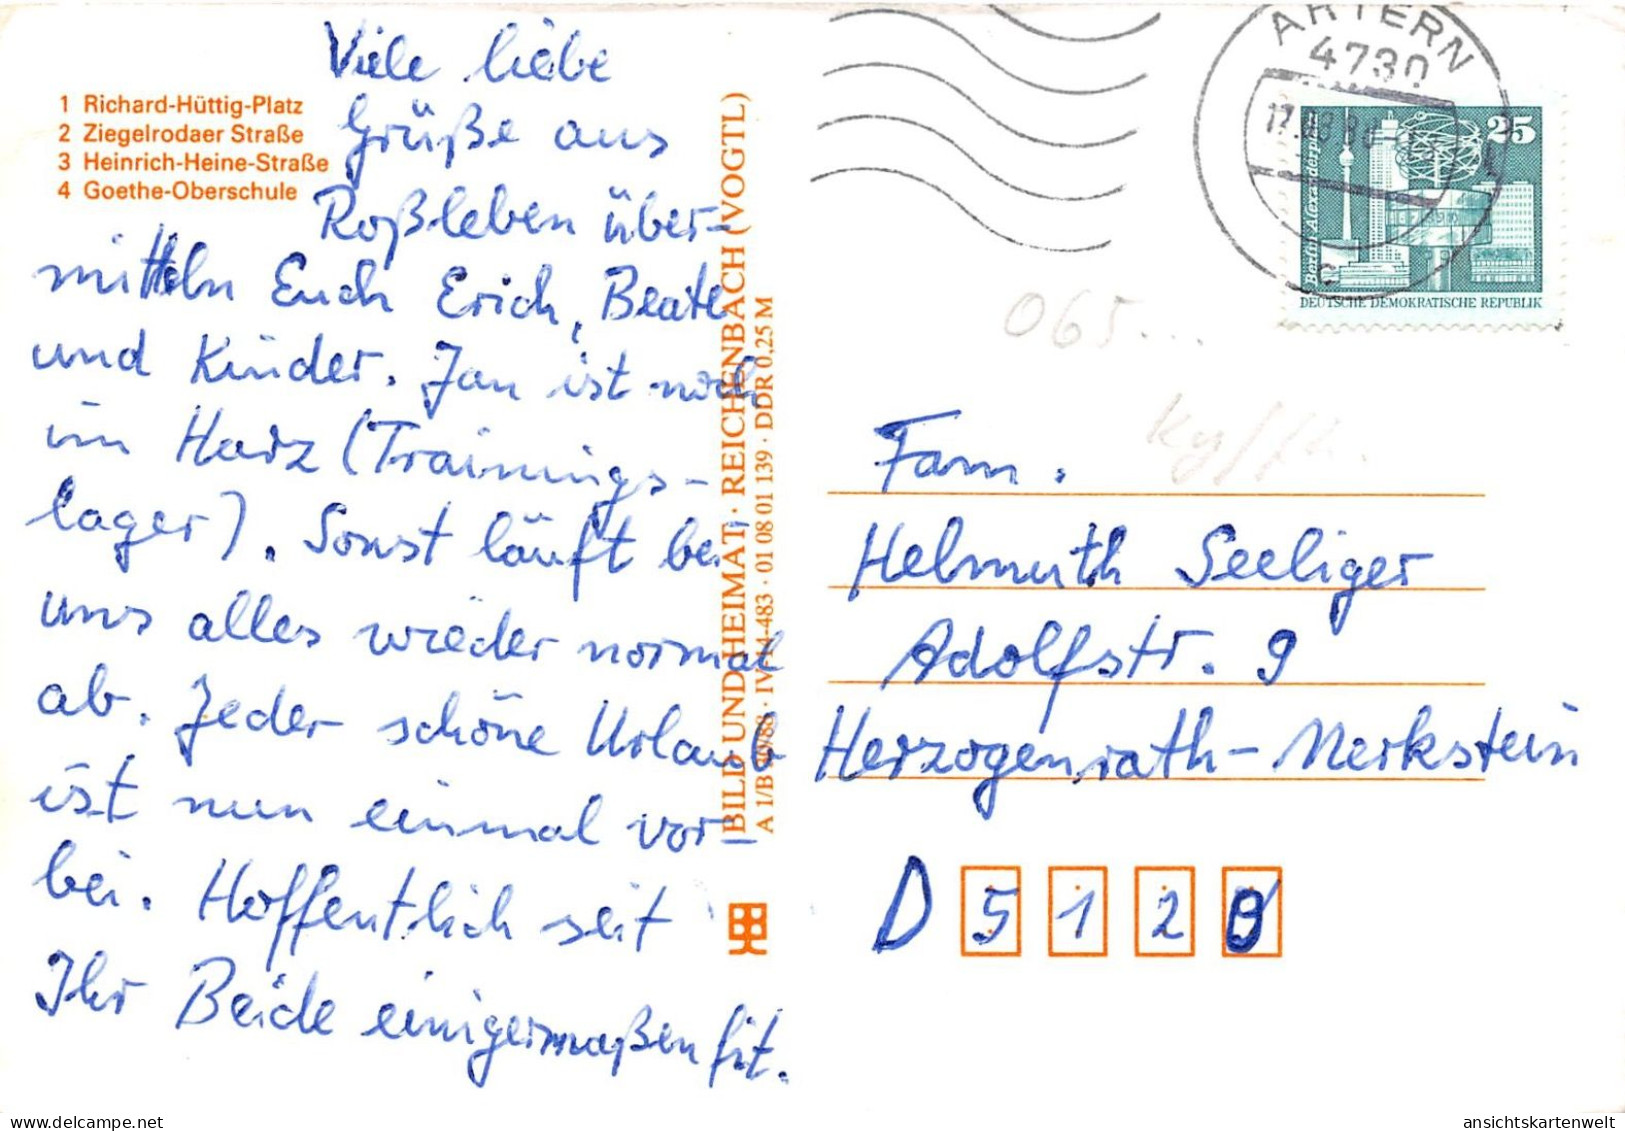 1 Richard-Hüttig-Platz
2 Ziegelrodaer Straße
3 Heinrich-Heine-Straße
4 Goethe-Oberschule
Viele liebe
Grüße aus
Roßleben über-
mitteln Euch Erich, Beate
und Kinder. Jan ist noch
im Harz (Trainings-
lager). Sonst läuft bei
uns alles wieder normal
ab. Jeder schöne Urlaub
ist nun einmal vor-
bei. Hoffentlich seit
Ihr Beide einigermaßen fit.
BILD UND HEIMAT · REICHENBACH (VOGTL)
A 1/B 89/88 · IV-14-483 · 01 08 01 139 · DDR 0,25 M
ARTERN
4730
c
25
Berlin-Alexanderplatz
DEUTSCHE DEMOKRATISCHE REPUBLIK
065...
Kyffh.
Fam.
Helmuth Seeliger
Adolfstr. 9
Herzogenrath-Merkstein
D 5 1 2 0
ansichtskartenwelt